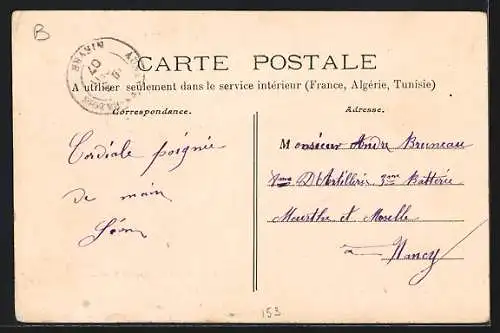 B
CARTE POSTALE
A utiliser seulement dans le service intérieur (France, Algérie, Tunisie)
Correspondance.
Adresse.
Cordiale poignée
de main
Monsieur Andre Bruneau
8eme D'Artillerie 3me Batterie
Meurthe et Moselle
a Nancy
153